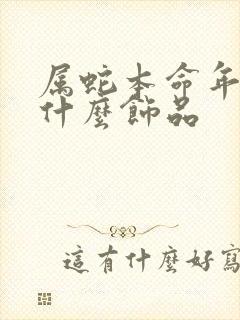 属蛇本命年
什麼飾品
這有什麼好寫